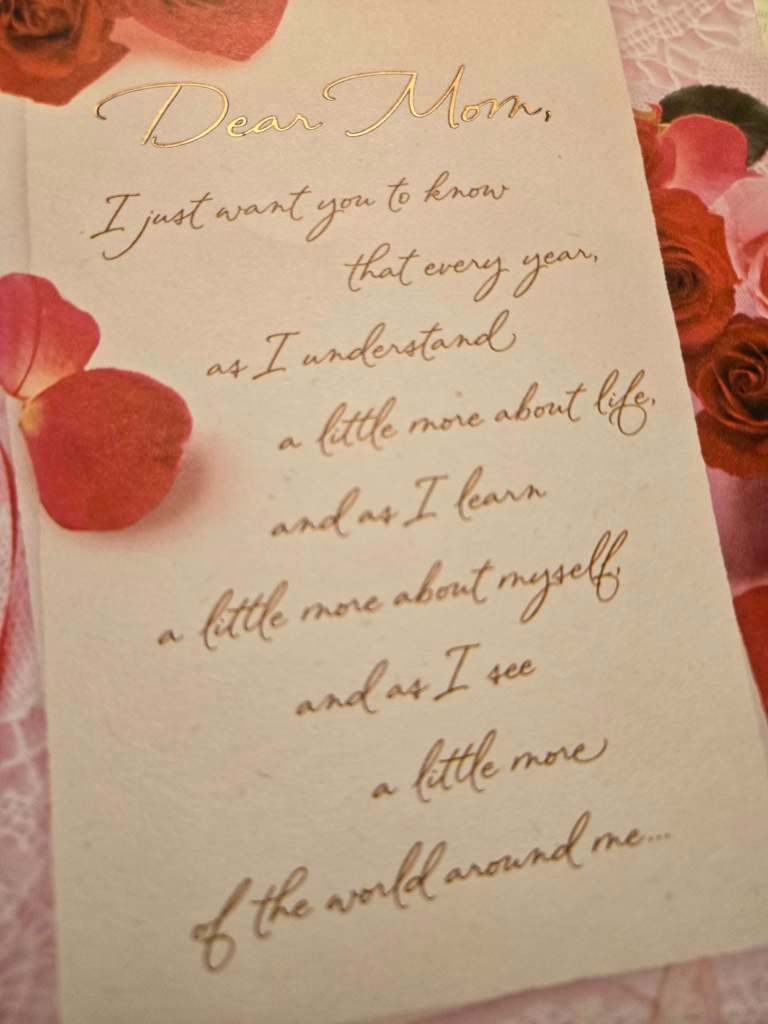 Dear Mom,
I just want you to know
that every year,
as I understand
a little more about life,
and as I learn
a little more about myself,
and as I see
a little more
of the world around me...